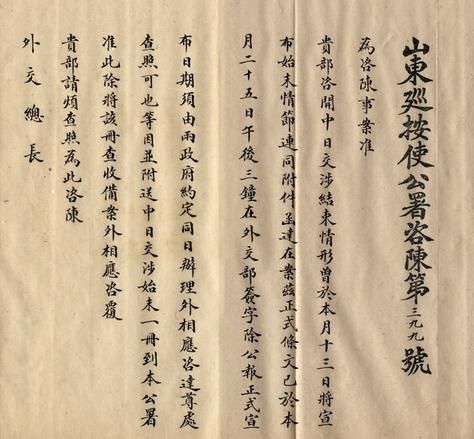 山東巡按使公署咨陳第三九九號
為咨陳事案准
貴部咨開中日交涉結束情形曾於本月十三日將宣
布始末情節連同附件函達在案茲正式條文已於本
月二十五日午後三鐘在外交部簽字除公報正式宣
布日期須由兩政府約定同日辦理外相應咨達尊處
查照可也等因並附送中日交涉始末一冊到本公署
准此除將該冊查收備案外相應咨覆
貴部請煩查照為此咨陳
外交總長